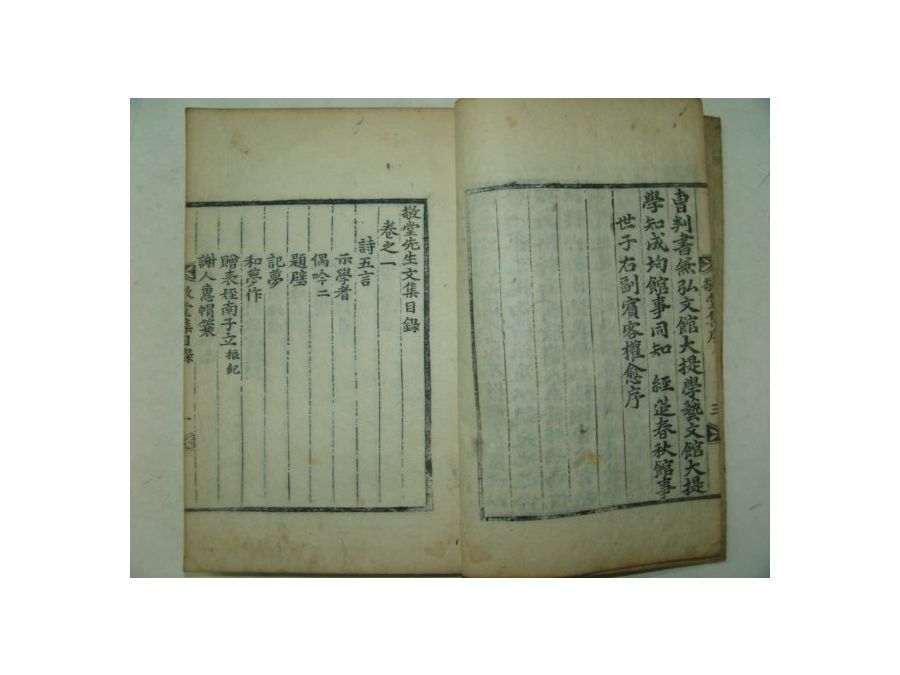 曺判書無弘文館大提學藝文館大提
學知成均館事同知 經筵春秋館事
世子右副賓客權愈序
敬堂集序 三
敬堂先生文集目錄
卷之一
詩五言
示學者
偶吟二
題壁
記夢
和夢作
贈表姪南子立振紀
謝人惠帽䇿
敬堂集目錄 一